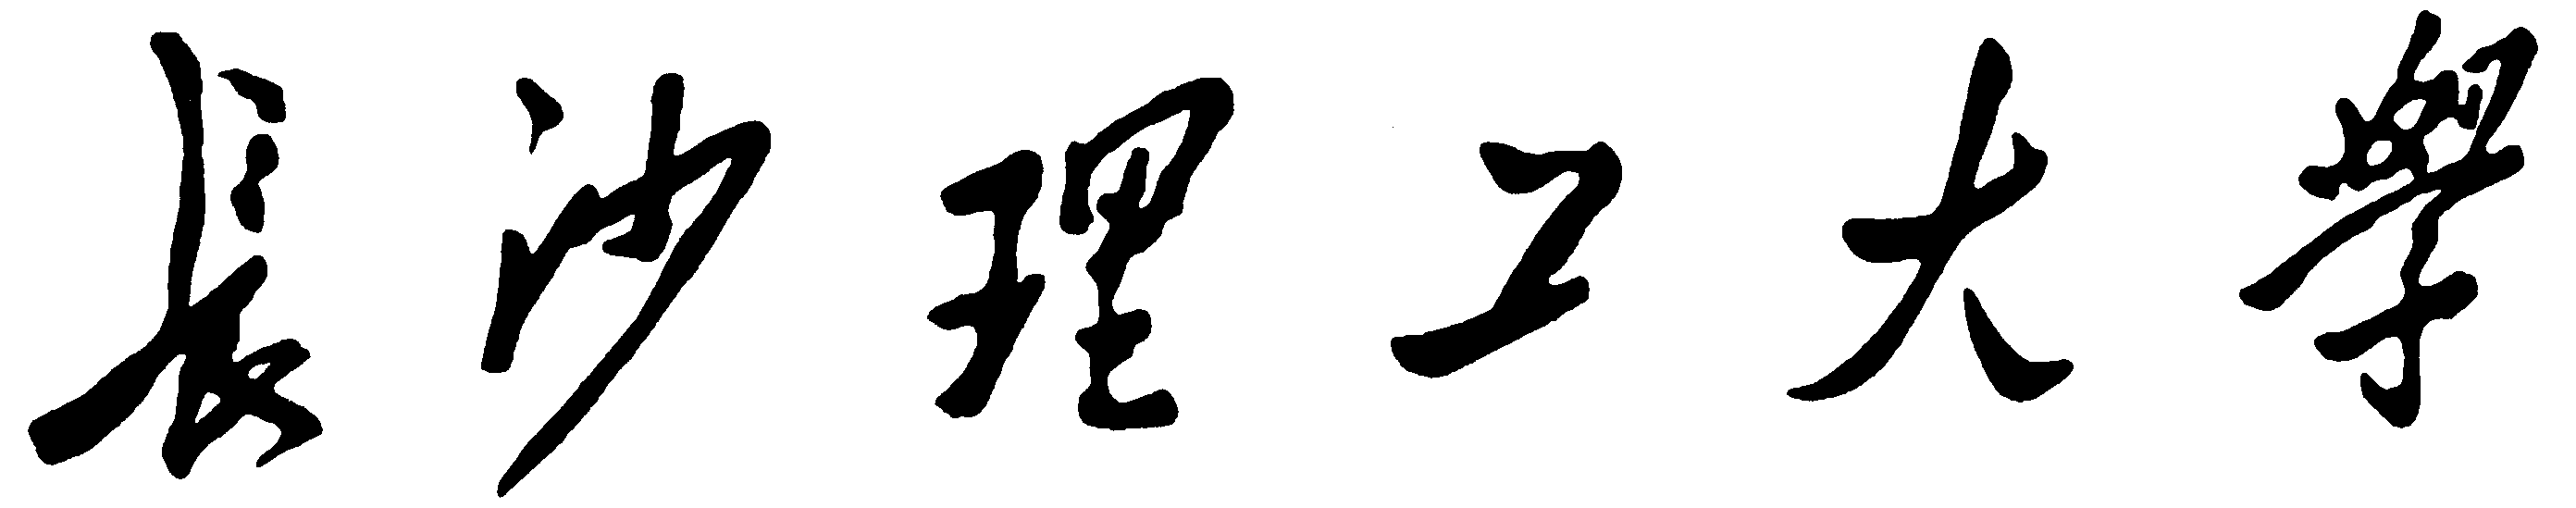 長沙理工大學